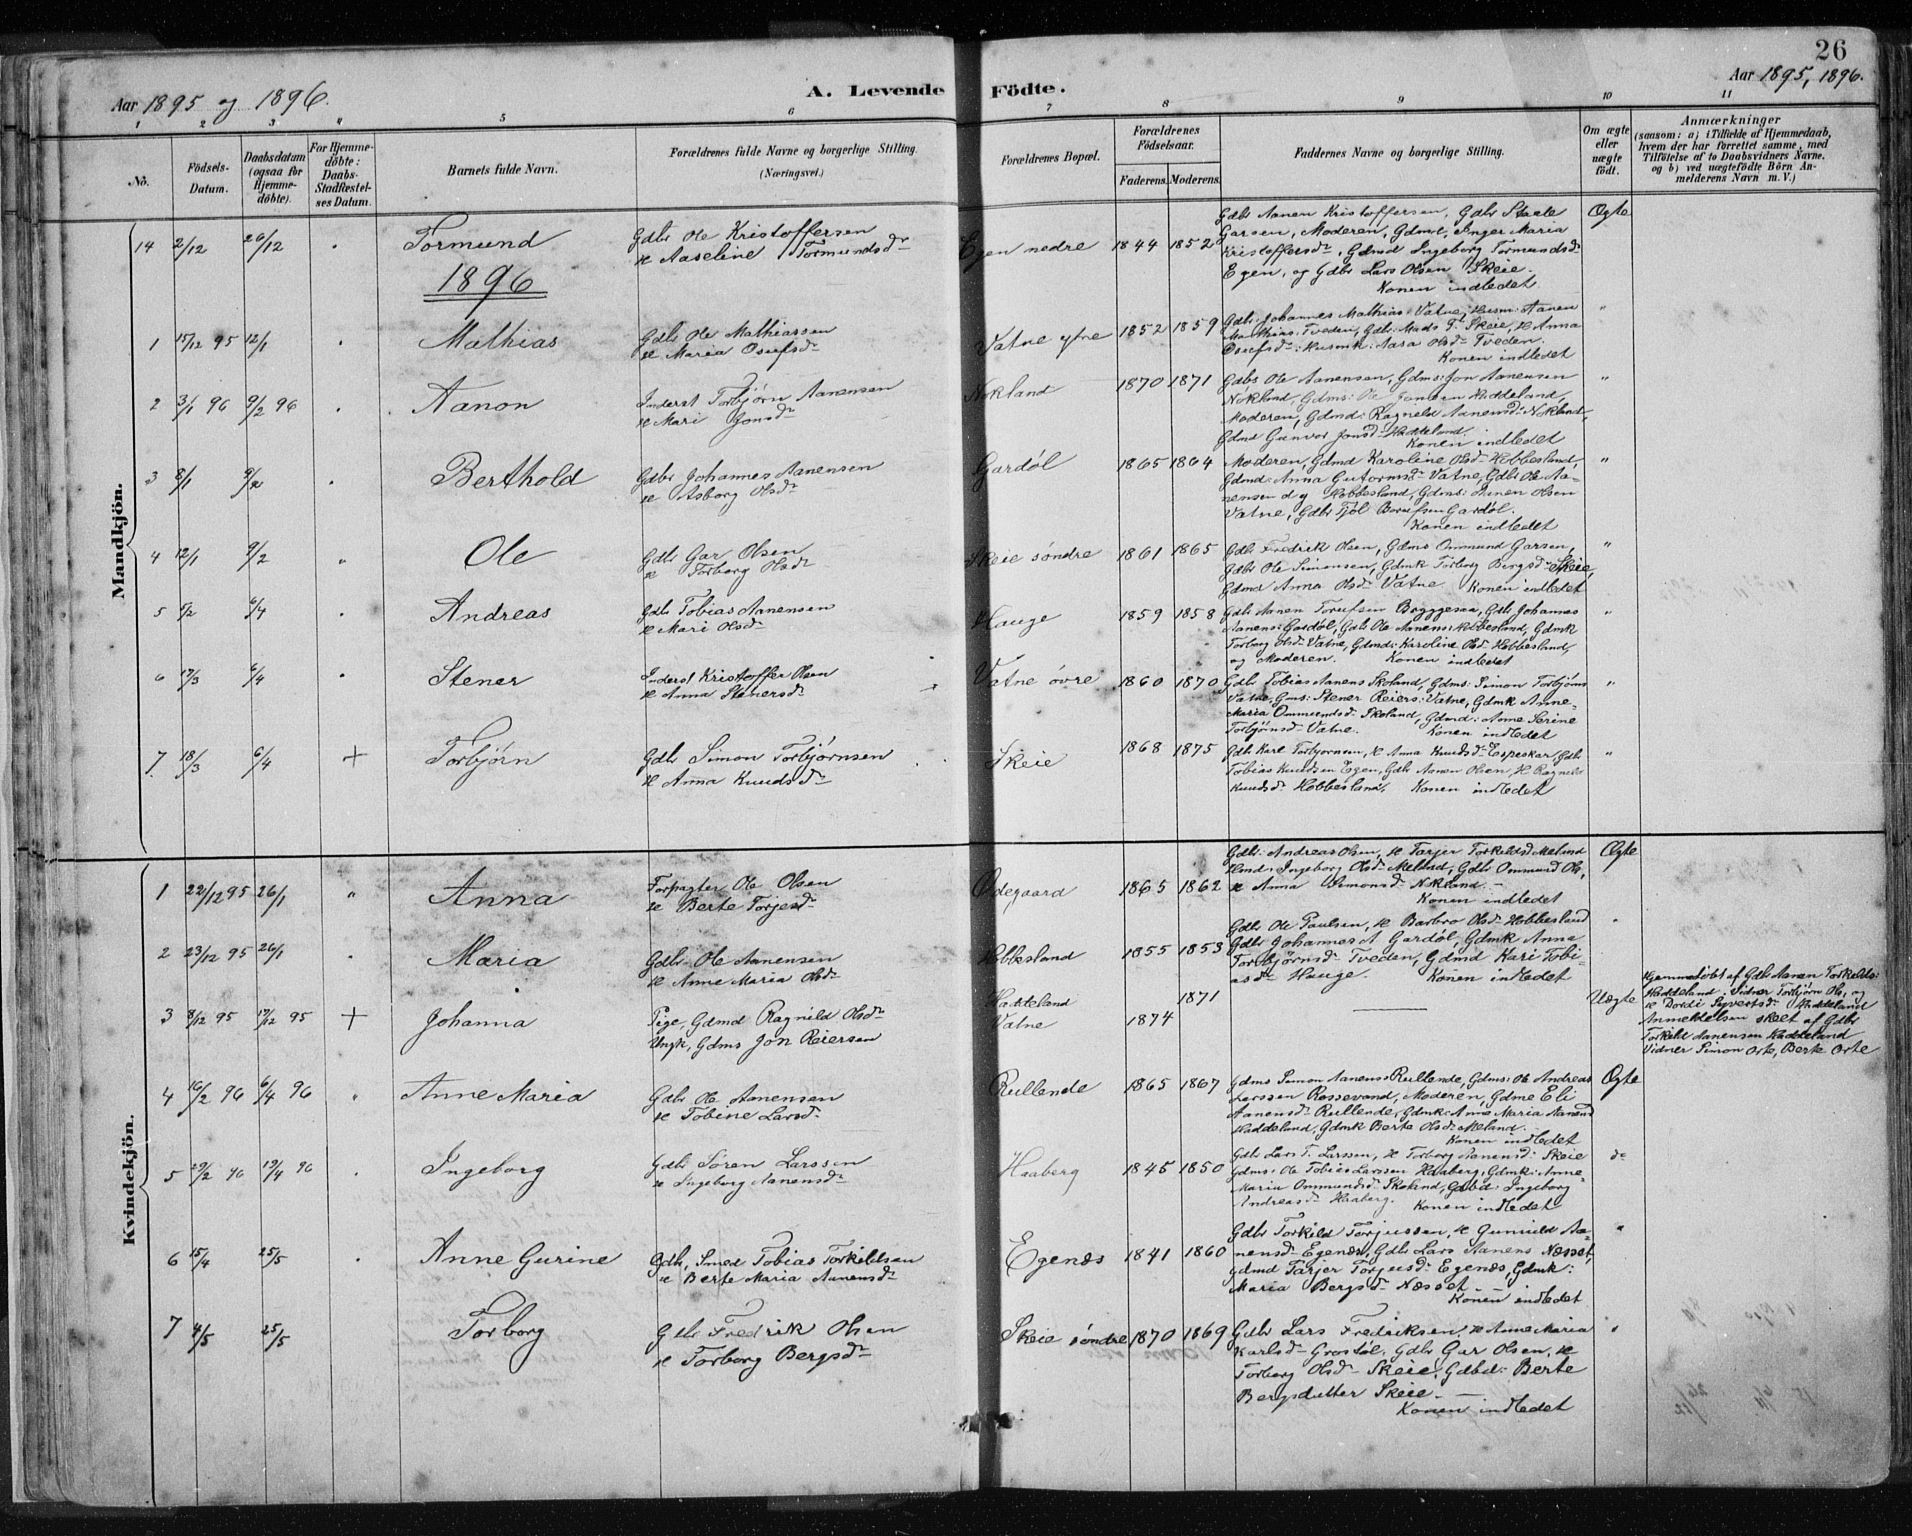 26
Aar 1895 og 1896.
A. Levende Födte.
Aar 1895, 1896.
1 2 3 " 5 6 7 8 9 10 11
No.
Födsels-
Datum.
Daabsdatum
(ogsaa for
Hjemme-
döbte).
For Hjemme-
döbte:
Daabs-
Stadfæstel-
ses Datum.
Barnets fulde Navn.
Forældrenes fulde Navne og borgerlige Stilling.
(Næringsvei.)
Forældrenes Bopæl.
Forældrenes
Födselsaar.
Faderens. Moderens.
Faddernes Navne og borgerlige Stilling.
Om ægte
eller
uægte
födt.
Anmærkninger
(saasom: a) i Tilfælde af Hjemmedaab,
hvem der har forrettet samme, med
Tilföielse af to Daabsvidners Navne.
og b) ved uægtefödte Börn An-
melderens Navn m. V.)
Mandkjön.
14 2/12 26/12 " Tormund
Gdbr Ole Kristoffersen
& Aaseline Tormundsdr
Egen nedre 1844 1852
Gdbr Aanen Kristoffersen, Gdbr Staale
Garsen, Moderen, Gdmd, Inger Maria
Kristoffersdr, Gdmd Ingeborg Tormundsdr
Egen, og Gdbr Lars Olsen Skeie.
Konen indledet
Ægte
1896
1 15/12 95 12/1 " Mathias
Gdbr Ole Mathiassen
& Maria Osufsdr
Vatne ytre 1852 1859
Gdbr: Johannes Mathias: Vatne, Husm: Aanen
Mathias: Tveden, Gdbr: Mads T. Skeie, & Anna
Osufsdr: Husmk: Aasa Olsdr Tveden.
Konen indledet
"
2 3/1 96 9/2 96 " Aanon
Inderst Torbjörn Aanensen
& Mari Jonsdr
Nökland 1870 1871
Gdbr Ole Aanensen, Gdms: Jon Aanensen
Nökland, Gdms: Ole Jonsen Haddeland,
Moderen, Gdmd: Ragnild Aanensdr Nökland,
Gdmd Gunvor Jonsdr Haddeland.
Konen indledet
"
3 8/1 9/2 " Berthold
Gdbr Johannes Aanensen
& Asborg Olsdr
Gardøl 1865 1864
Moderen, Gdmd Karoline Olsdr Hobbesland,
Gdmd: Anna Gutormsdr Vatne, Gdbr Ole Aa-
nensen d y Hobbesland, Gdms: Aanen Olsen
Vatne, Gdbr Tjöl Berufsen Gardøl.
Konen indledet
"
4 12/1 9/2 " Ole
Gdbr Gar Olsen
& Torborg Olsdr
Skeie søndre 1861 1865
Gdbr Fredrik Olsen, Gdms Ommund Garsen,
Gdbr Ole Simonsen, Gdmk Torborg Bergsdr Skeie,
Gdmd Anna Olsdr Vatne. Konen indledet
"
5 5/2 6/4 " Andreas
Gdbr Tobias Aanensen
& Mari Olsdr
Hauge 1859 1858
Gdbr Aanen Torufsen Bryggesaa, Gdbr Johannes
Aanens: Gardøl, Gdbr Ole Aanens: Hobbesland, Gdmk
Torborg Olsdr Vatne, Gdmd: Karoline Olsdr Hobbesland,
og Moderen. Konen indledet
"
6 17/3 6/4 " Stener
Inderst Kristoffer Olsen
& Anna Stenersdr
Vatne øvre 1860 1870
Gdbr Tobias Aanens Skoland, Gdms: Simon Torbjörns
Vatne, Gms: Stener Reiers: Vatne, Gdmk Anne
Maria Ommundsdr Skoland, Gdmd: Anne Serine
Torbjørnsdr Vatne. Konen indledet
"
7 18/3 6/4 + Torbjørn
Gdbr Simon Torbjørnsen
& Anna Knudsdr
Skeie 1868 1875
Gdbr Karl Torbjørnsen, & Anna Knudsdr Espeskar, Gdbr
Tobias Knudsen Egen, Gdbr Aanen Olsen, & Ragnild
Knudsdr Hobbesland. Konen indledet
"
Kvindekjön.
1 22/12 95 26/1 " Anna
Forpagter Ole Olsen
& Berte Torjesdr
Ødegaard 1865 1862
Gdbr: Andreas Olsen, & Tarjer Torkildsdr Meland
Ingeborg Olsdr Meland, Gdbr Ommund Ols,
& Anna Simonsdr Nökland.
Konen indledet
Ægte
2 23/12 95 26/1 " Maria
Gdbr Ole Aanensen
& Anne Maria Olsdr
Hobbesland 1855 1853
Gdbr Ole Paulsen, & Barbro Olsdr Hobbesland
Gdbr Johannes A Gardøl, Gdmk Anna
Torbjørnsdr Tveden, Gdmd Kari Tobi-
asdr Hauge. Konen indledet
"
3 8/12 95 17/12 95 + Johanna
Pige, Gdmd Ragnild Olsdr
Ungk, Gdms Jon Reiersen
Haddeland 1871
Vatne 1874
Uægte
Hjemmedöbt af Gdbr Aanen Torkilds:
Haddeland. Vidner Torbjörn Ols, og
& Dordi Syvertsdr Haddeland
Anmeldelsen skeet af Gdbr
Torkild Aanensen Haddeland
Vidner Simon Orte, Berte Orte
4 16/2 96 6/4 96 " Anne Maria
Gdbr Ole Aanensen
& Tobine Larsdr
Rullende 1865 1867
Gdms Simon Aanens: Rullende, Gdms: Ole Andreas
Larssen Rossevand, Moderen, Gdme Eli
Aanensdr Rullende, Gdmk: Anne Maria Aanensd
Haddeland, Gdmk Berte Olsdr Meland.
Konen indledet
Ægte
5 29/2 96 19/4 96 " Ingeborg
Gdbr Sören Larssen
& Ingeborg Aanensdr
Haaberg 1845 1850
Gdbr Lars T. Larssen, & Torborg Aanensdr: Skeie
Gdms: Ole Tobias Larssen Haaberg, Gdmk: Anne
Maria Ommundsdr Skoland, Gdbd: Ingeborg
Andreasdr Haaberg. Konen indledet
do
6 15/4 25/5 " Anne Gurine
Gdbr, Smed Tobias Torkildsen
& Berte Maria Aanensdr
Egenæs 1841 1860
Gdbr Torkild Torjussen, & Gunuild Aa-
nensdr Egenæs, Gdbr Lars Aanens Næsset,
Gdmd Tarjer Torjusdr Egenæs, Gdmk:
Maria Bergsdr Næsset
Konen indledet
"
7 4/5 25/5 Torborg
Gdbr Fredrik Olsen
& Torborg Bergsdr
Skeie søndre 1870 1869
Gdbr Lars Fredriksen, & Anne Maria
Karlsdr Grostøl, Gdbr Gar Olsen, &
Torborg Olsdr Skeie, Gdbd: Berte
Bergsdatter Skeie.
Konen indledet
"